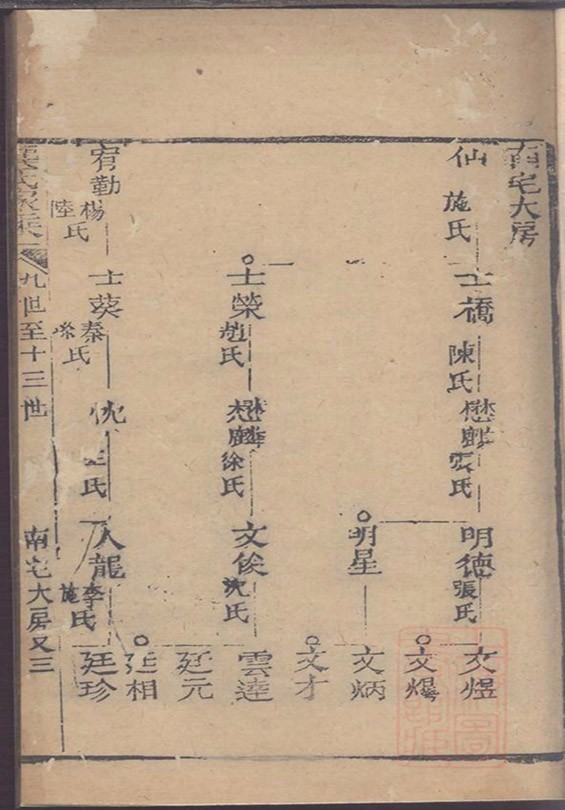 南宅大房
仙 施氏
士橋 陳氏
懋 氏
明德 張氏
文煜
文
明星
文炳
文才
士榮 趙氏
懋 徐氏
文俟 沈氏
雲逵
廷元
廷相
宥勤 楊氏 陸氏
士葵 秦氏 氏
忱 氏
人龍 李氏 施氏
廷珍
九世至十三世
南宅大房又三